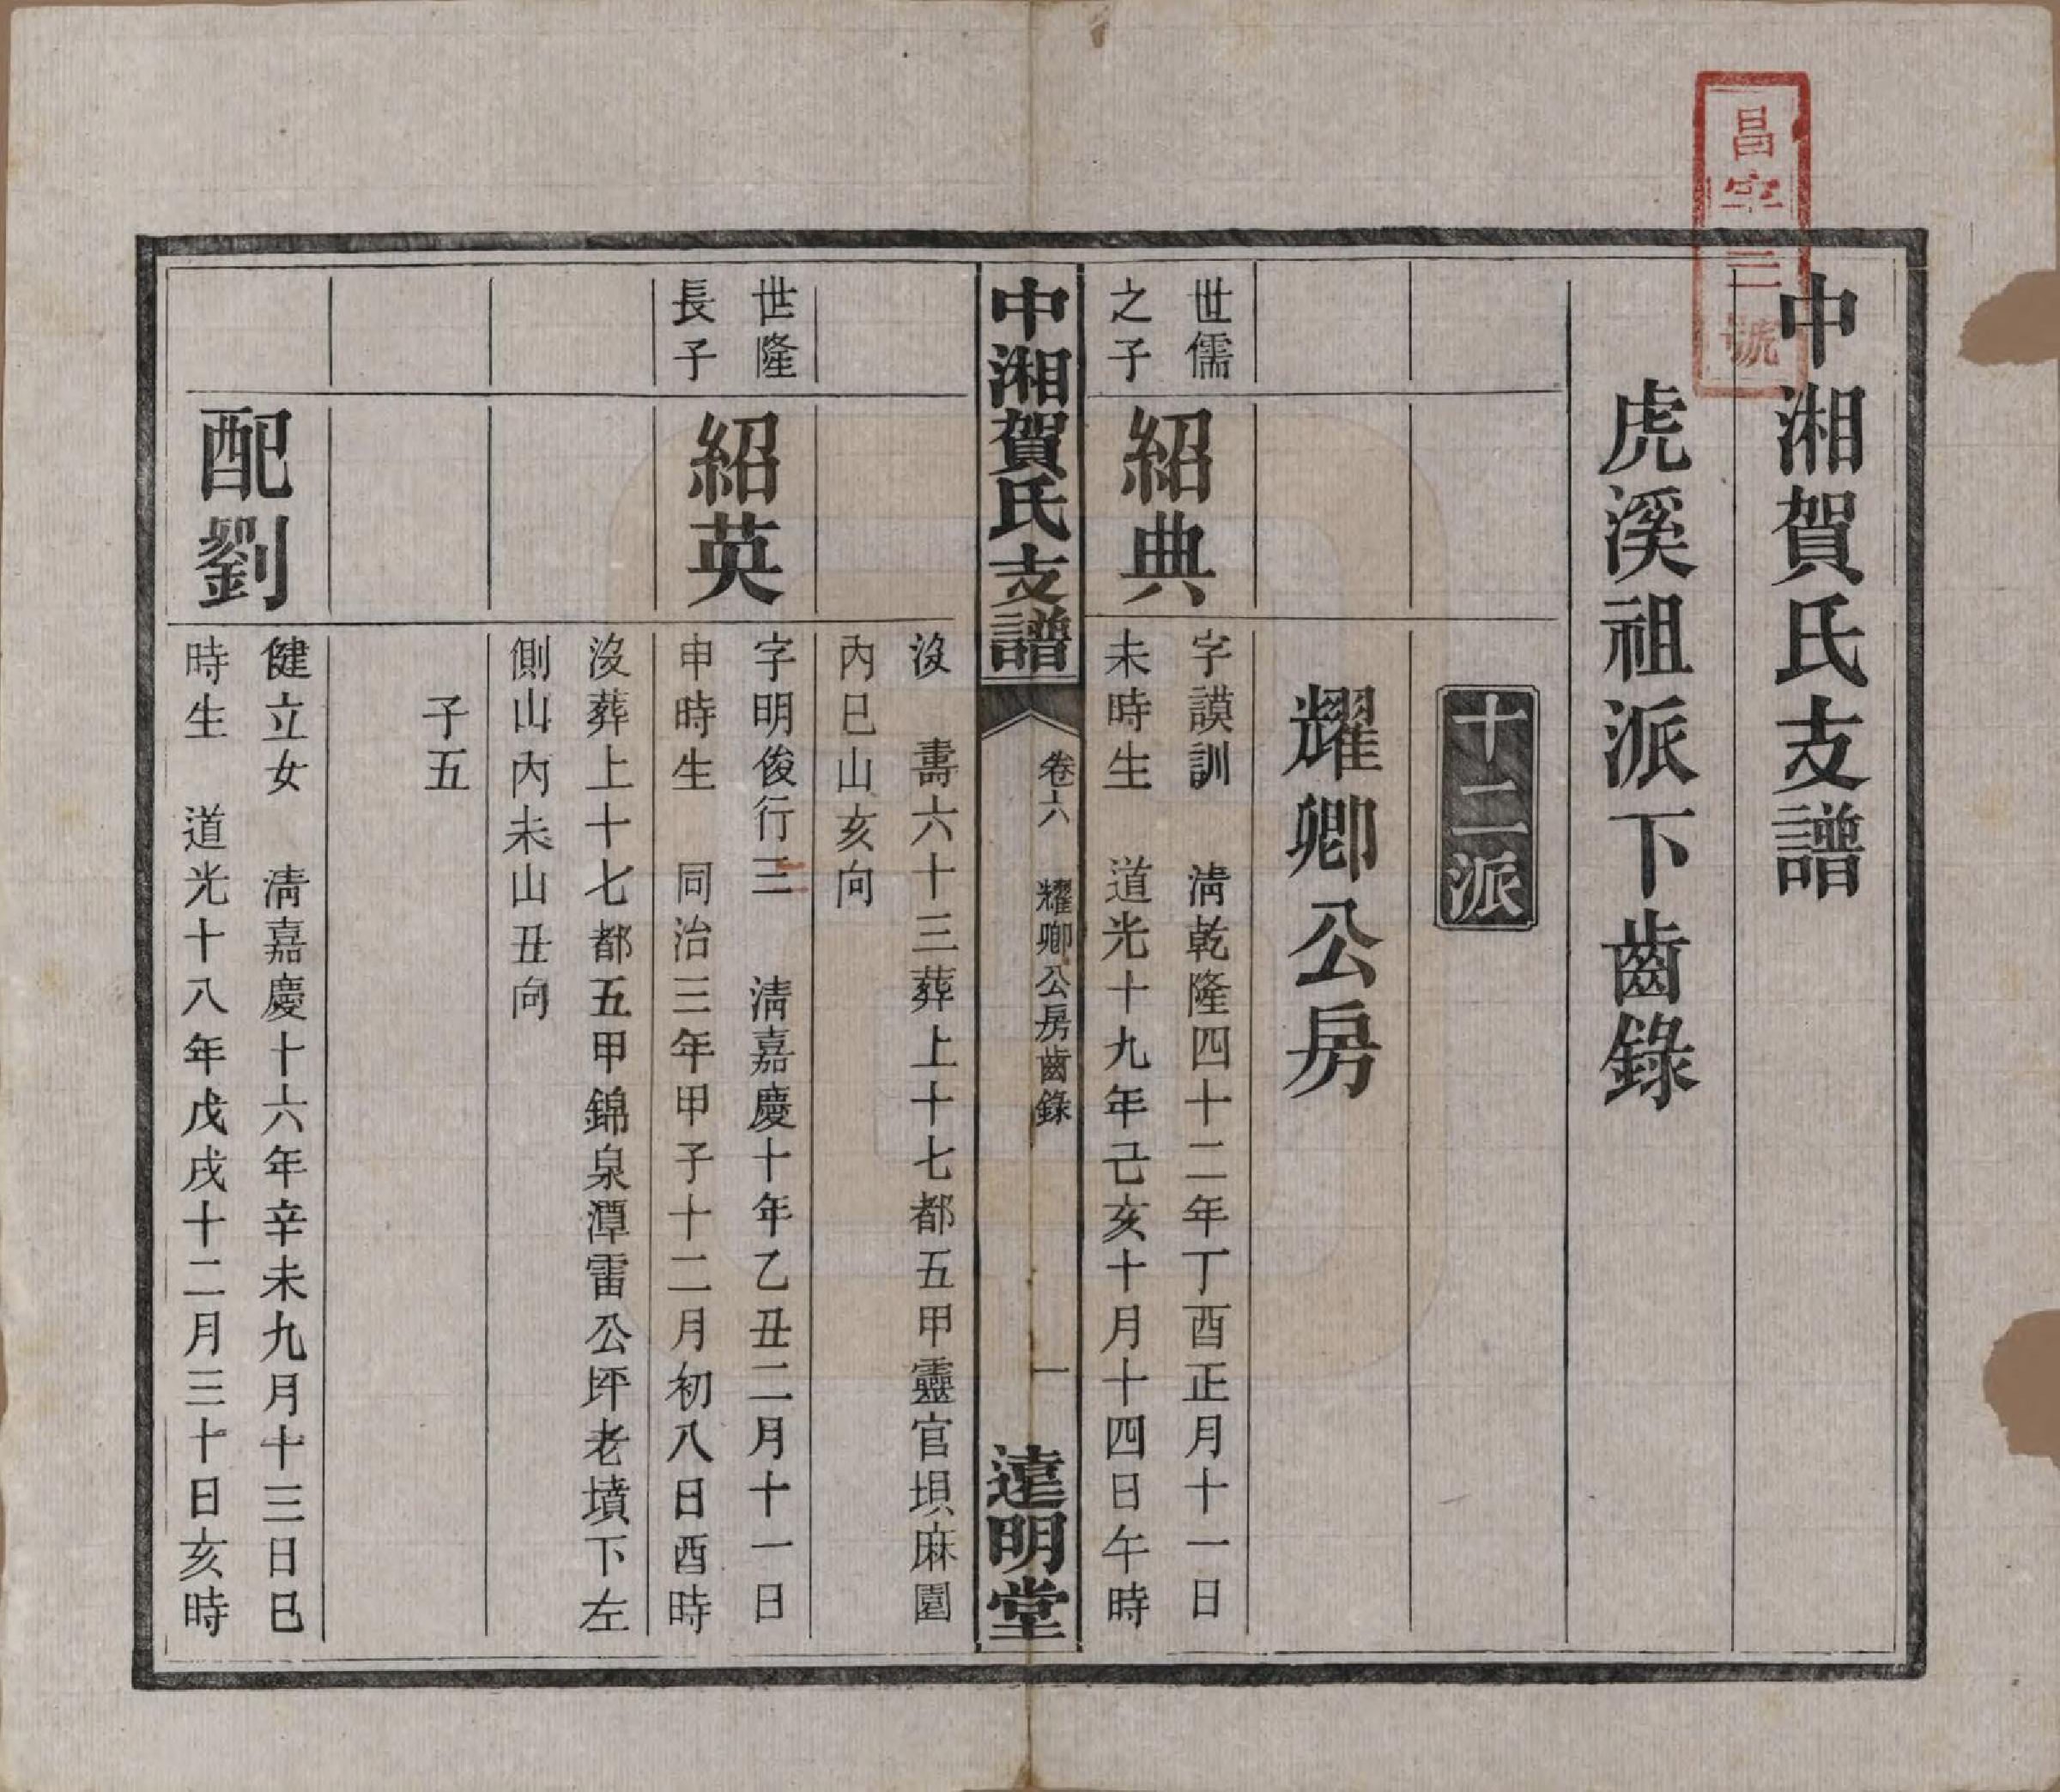 昌字三號
中湘賀氏支譜
虎溪祖派下齒錄
十二派
耀卿公房
世儒
之子
紹典
字謨訓 淸乾隆四十二年丁酉正月十一日
未時生 道光十九年己亥十月十四日午時
中湘賀氏支譜
卷六 耀卿公房齒錄
一
達明堂
沒 壽六十三葬上十七都五甲靈官垻麻園
內巳山亥向
世隆
長子
紹英
字明俊行三 淸嘉慶十年乙丑二月十一日
申時生 同治三年甲子十二月初八日酉時
沒葬上十七都五甲錦泉潭雷公坪老墳下左
側山內未山丑向
子五
配劉
健立女 淸嘉慶十六年辛未九月十三日巳
時生 道光十八年戊戌十二月三十日亥時